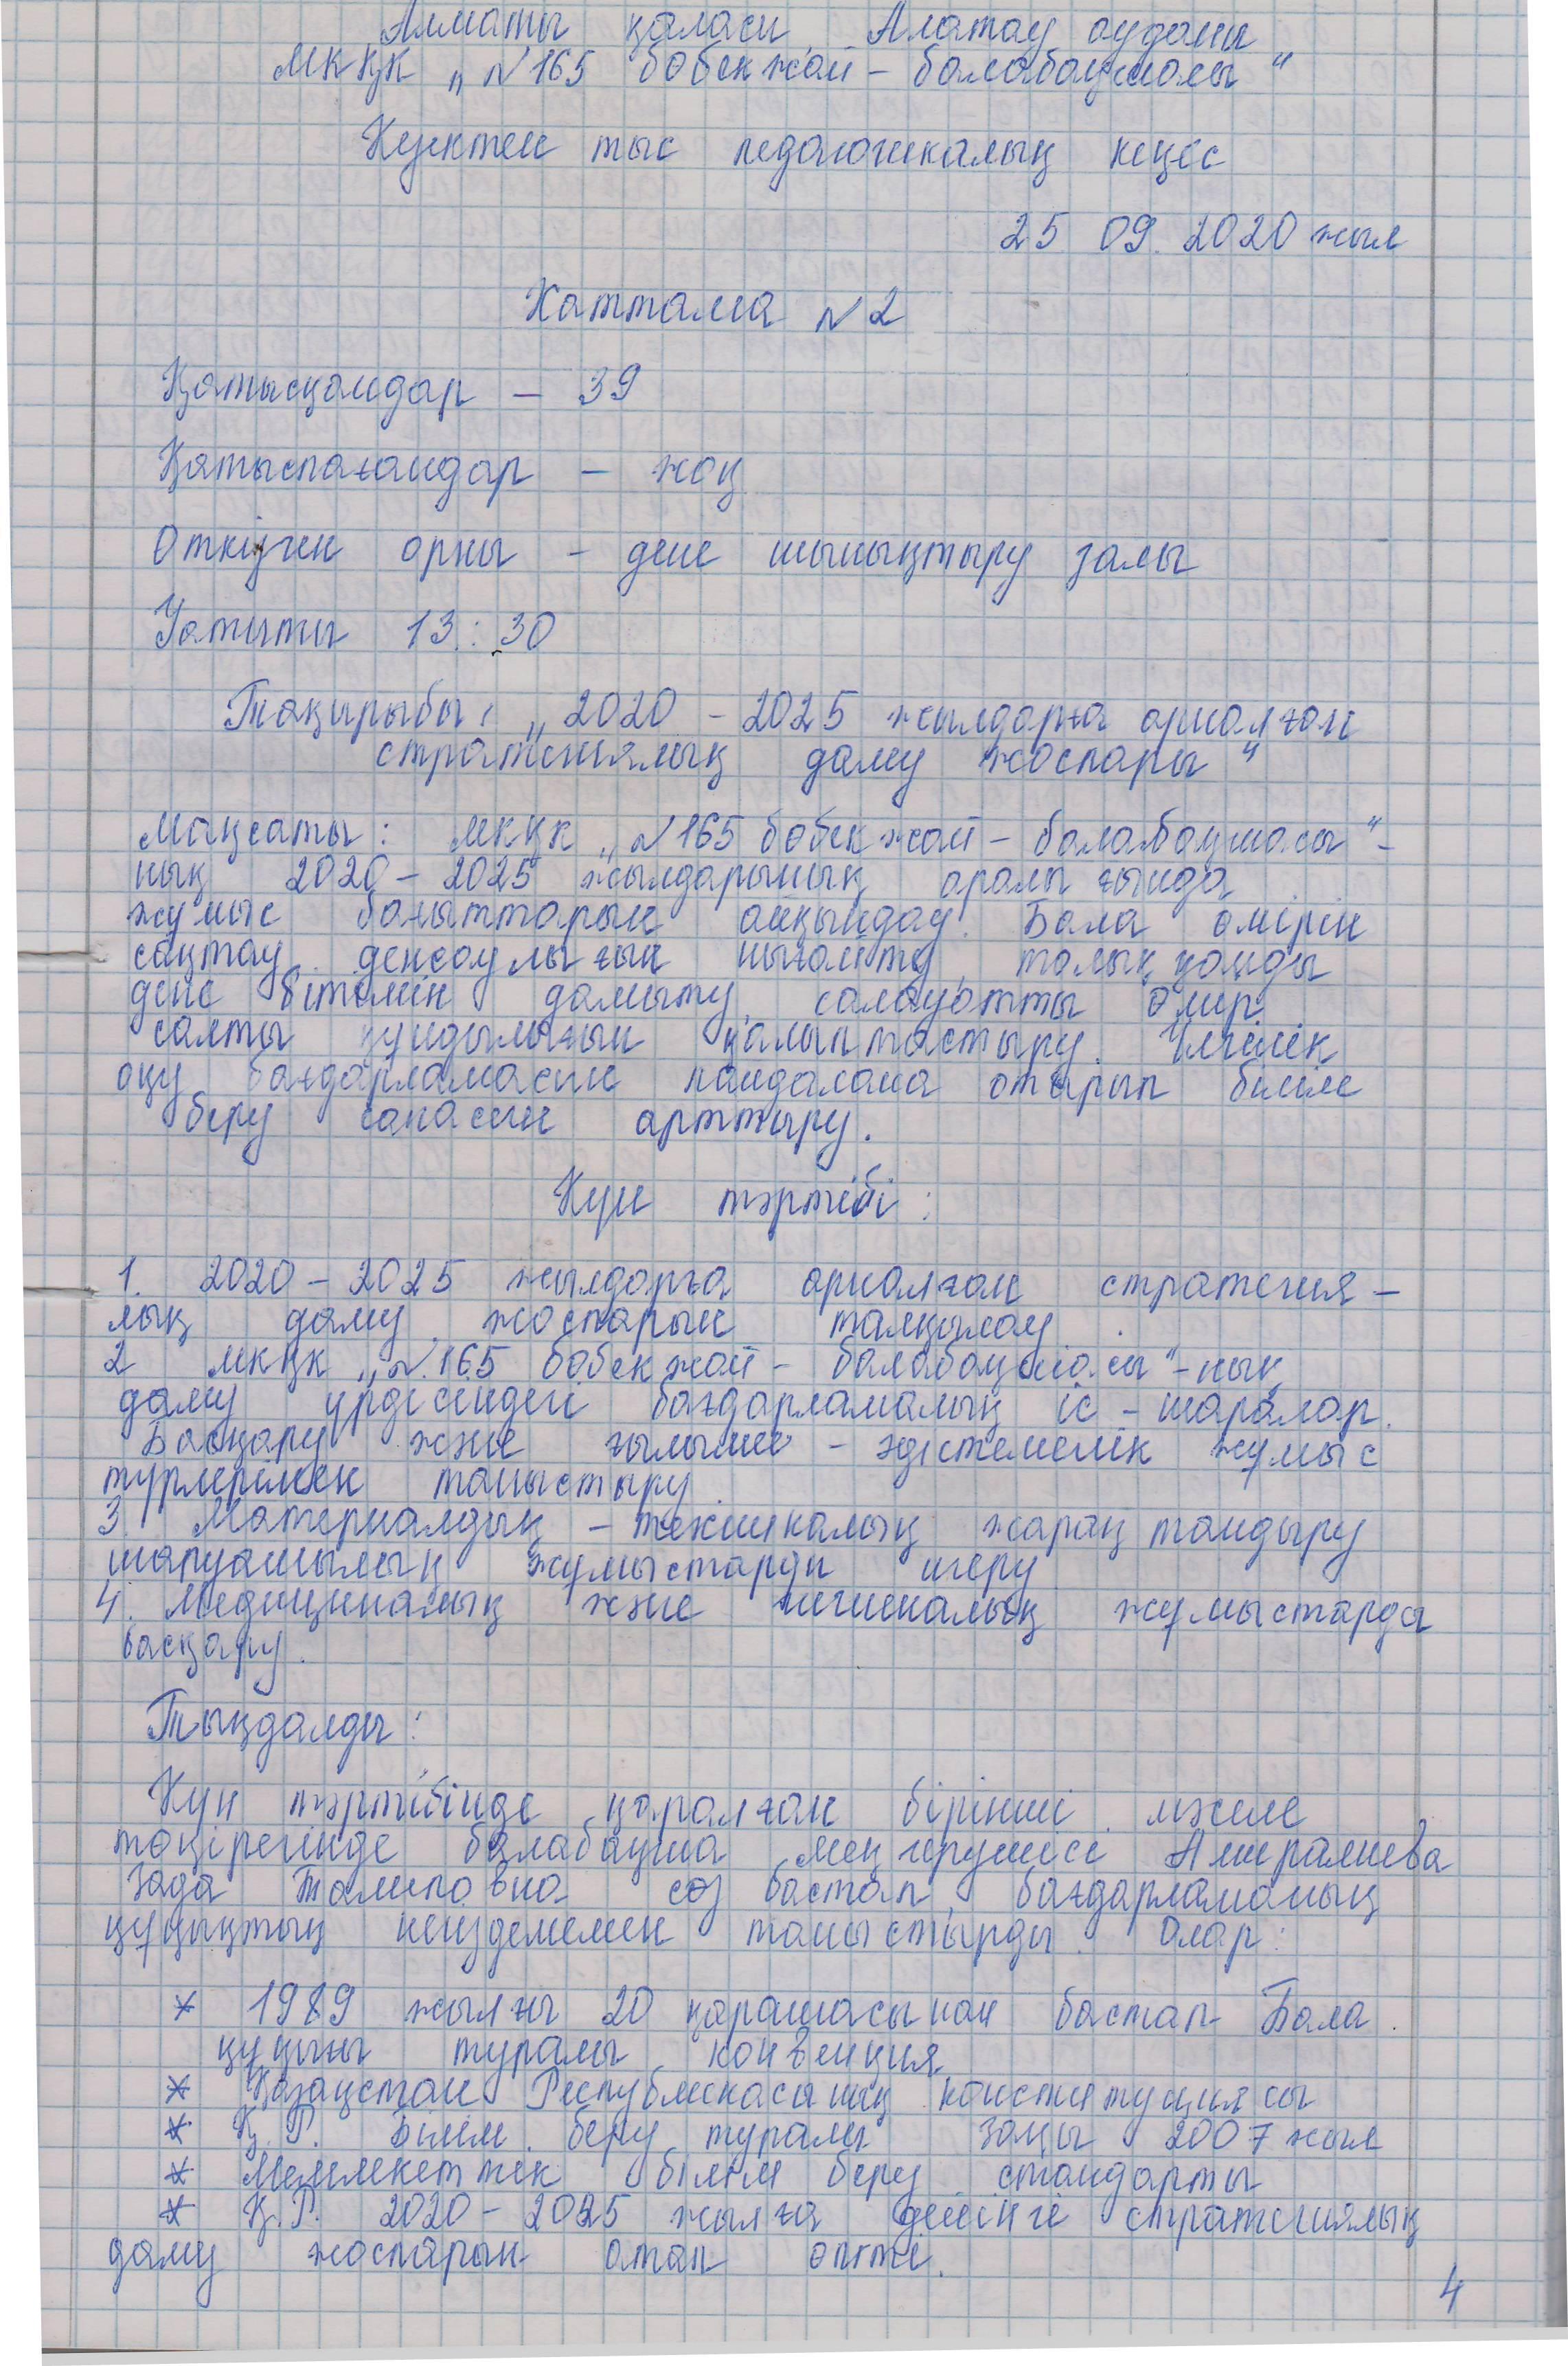 Алматы қаласы, Алатау ауданы
МКҚК „№165 бөбекжай – балабақшасы“
Кезектен тыс педагогикалық кеңес
25 09. 2020 жыл
Хаттама №2
Қатысқандар – 39
Қатыспағандар – жоқ
Өткізген орны – дене шынықтыру залы
Уақыты 13:30
Тақырыбы: „2020 – 2025 жылдарға арналған
стратегиялық даму жоспары“
Мақсаты: МКҚК „№165 бөбекжай – балабақшасы“-
ның 2020 – 2025 жылдарының аралығында
жұмыс бағыттарын айқындау. Бала өмірін
сақтау, денсаулығын нығайту, толыққанды
дене бітімін дамыту, салауатты өмір
салты құндылығын қалыптастыру. Үлгілік
оқу бағдарламасын пайдалана отырып білім
беру сапасын арттыру.
Күн тәртібі:
1. 2020 – 2025 жылдарға арналған стратегия –
лық даму жоспарын талқылау.
2 МКҚК „№165 бөбекжай – балабақшасы“-ның
даму үрдісіндегі бағдарламалық іс – шаралар.
Басқару және ғылыми – әдістемелік жұмыс
түрлерімен таныстыру.
3. Материалдық – техникалық жарақтандыру
шаруашылық жұмыстарын игеру
4. Медициналық және гигиеналық жұмыстарды
басқару.
Тыңдалды:
Күн тәртібінде қаралған бірінші мәселе
төңірегінде балабақша меңгерушісі Амиралиева
Зада Талиповна сөз бастап, бағдарламаның
құқықтық негіздемемен таныстырды. Олар:
* 1989 жылғы 20 қарашасынан бастап Бала
құқығы туралы конвенция
* Қазақстан Республикасының конституциясы
* Қ.Р. Білім беру туралы заңы 2007 жыл
* Мемлекеттік білім беру стандарты
* Қ.Р. 2020 – 2025 жылға дейінгі стратегиялық
даму жоспарын атап өтті.
4